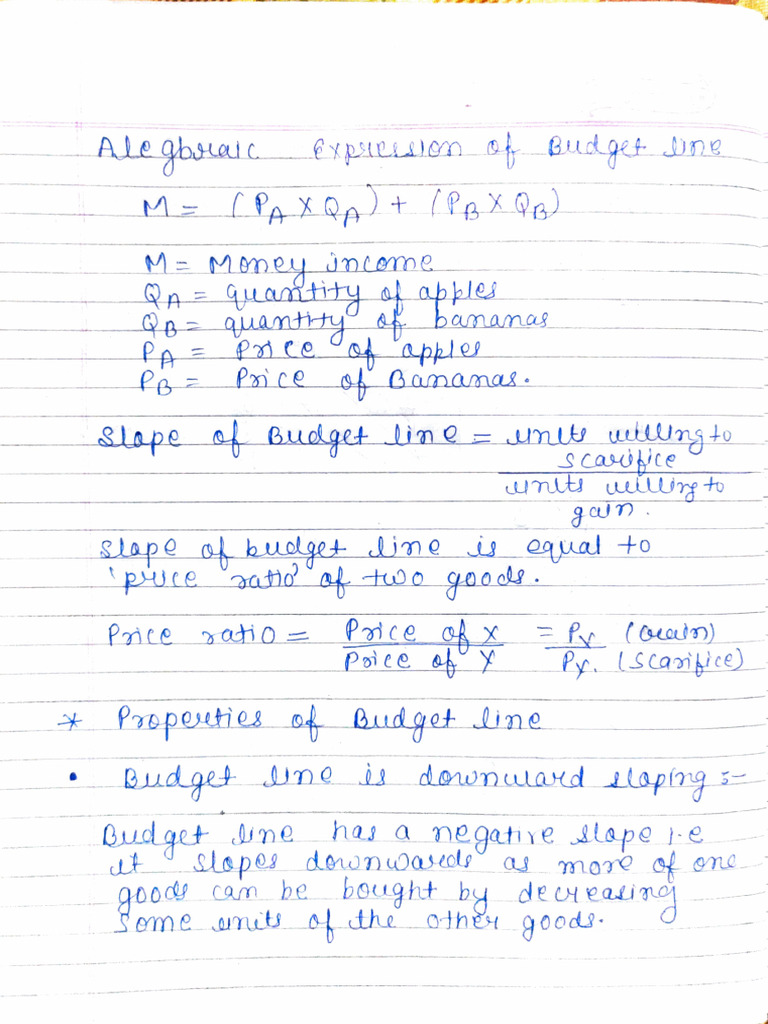 Alegbraic Expression of Budget line
M = (PA X QA) + (PB X QB)
M = Money income
QA = quantity of apples
QB = quantity of bananas
PA = Price of apples
PB = Price of Bananas.
Slope of Budget line = units willing to
scarifice
units willing to
gain.
Slope of budget line is equal to
'price ratio' of two goods.
Price ratio = Price of X = PX (Gain)
Price of Y PY. (Scarifice)
* Properties of Budget line
• Budget line is downward sloping :-
Budget line has a negative slope i.e
it slopes downwards as more of one
goods can be bought by decreasing
some units of the other goods.